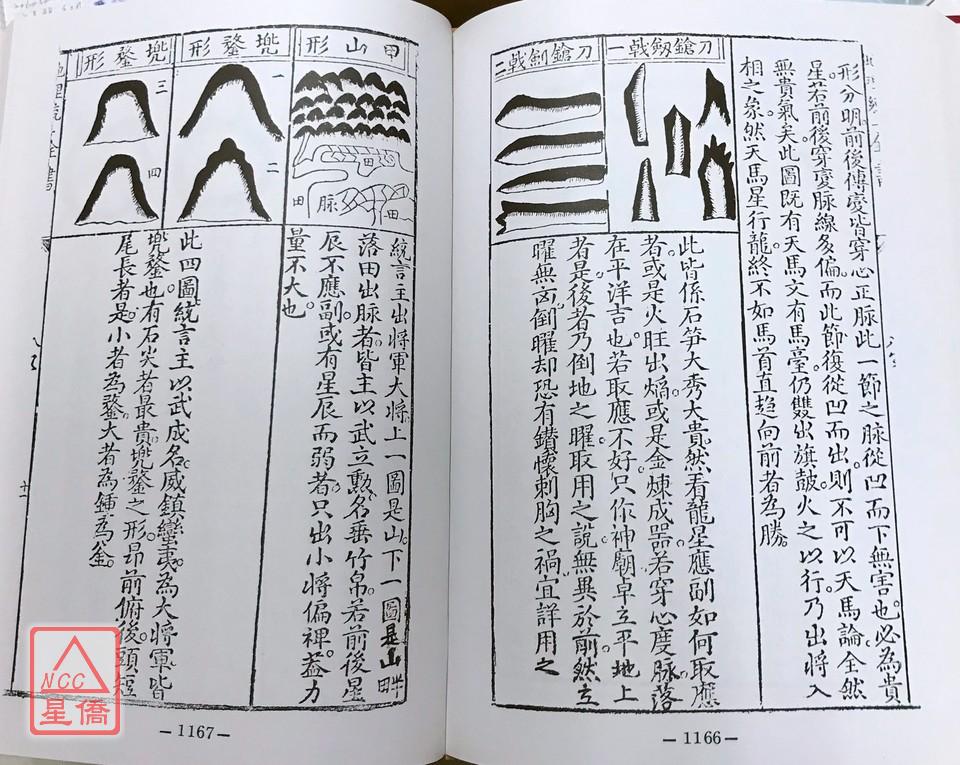 形分明前後傳變皆穿心正脉此一節之脉從凹而下無害也必為貴
星若前後穿變脉線多偏而此節復從凹而出則不可以天馬論全然
無貴氣矣此圖既有天馬又有馬臺仍雙出旗皷火之以行乃出將入
相之象然天馬星行龍終不如馬首直趋向前者為勝
刀鎗劒戟一
刀鎗劍戟二
此皆係石笋大秀大貴然看龍星應副如何取應
者或是火旺出熖或是金煉成噐若穿心度脉落
在平洋吉也若取應不好只作神廟卓立平地上
者是後者乃倒地之曜取用之說無異於前然立
曜無凶倒曜却恐有鑚懷刺胸之禍宜詳用之
—1166—
甲山形
田
田
脉
田
統言主出將軍大將上一圖是山下一圖是山田
落田出脉者皆主以武立勲名垂竹帛若前後星
辰不應副或有星辰而弱者只出小將偏裨蓋力
量不大也
兠鍪形
一
二
兠鍪形
三
四
此四圖統言主以武成名威鎮蠻夷為大將軍皆
兠鍪也有石炎者最貴兠鍪之形昂前俯後頭短
尾長者是小者為鍪大者為鍾為釜
—1167—
NCC
星僑